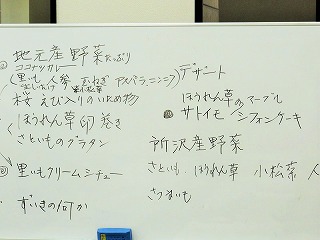 地元産野菜たっぷり
ココナツカレー
(里いも 人参 玉ねぎ アスパラ ニンニク)
桜えび入りのいため物
ほうれん草卵巻き
さといものグラタン
里いもクリームシチュー
ずいきの何か
デザート
ほうれん草のマーブル
サトイモ シフォンケーキ
所沢産野菜
さといも ほうれん草 小松菜 人
さつまいも